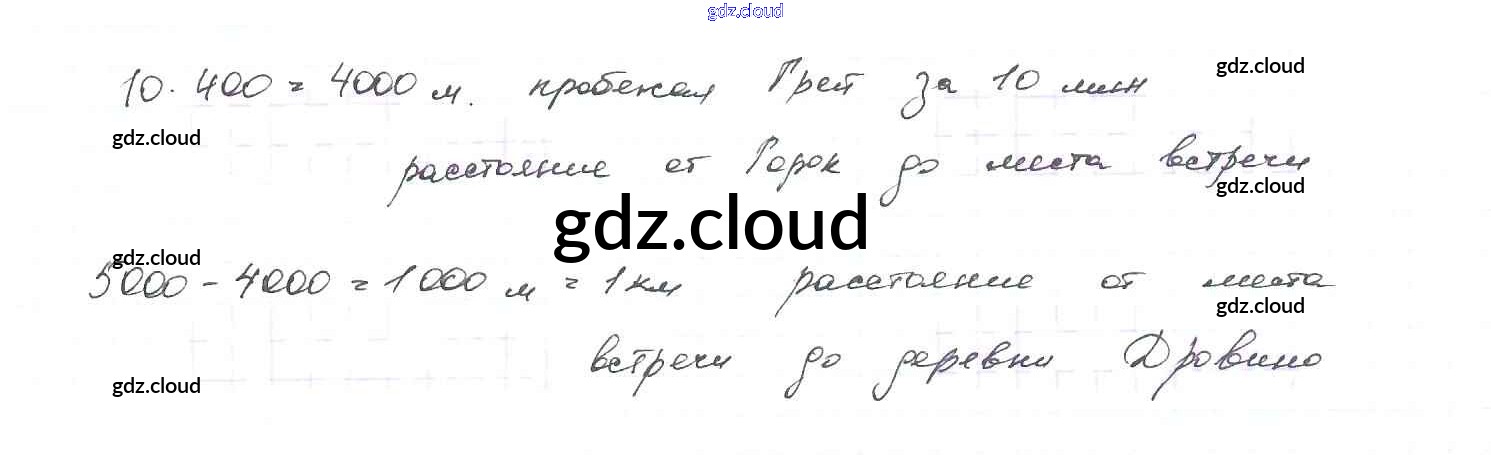 gdz.cloud
10 · 400 = 4000 м. пробежал Грей за 10 мин
gdz.cloud
gdz.cloud
расстояние от Горок до места встречи
gdz.cloud
gdz.cloud
gdz.cloud
5000 - 4000 = 1000 м = 1 км расстояние от места
gdz.cloud
встречи до деревни Дровино
gdz.cloud
gdz.cloud